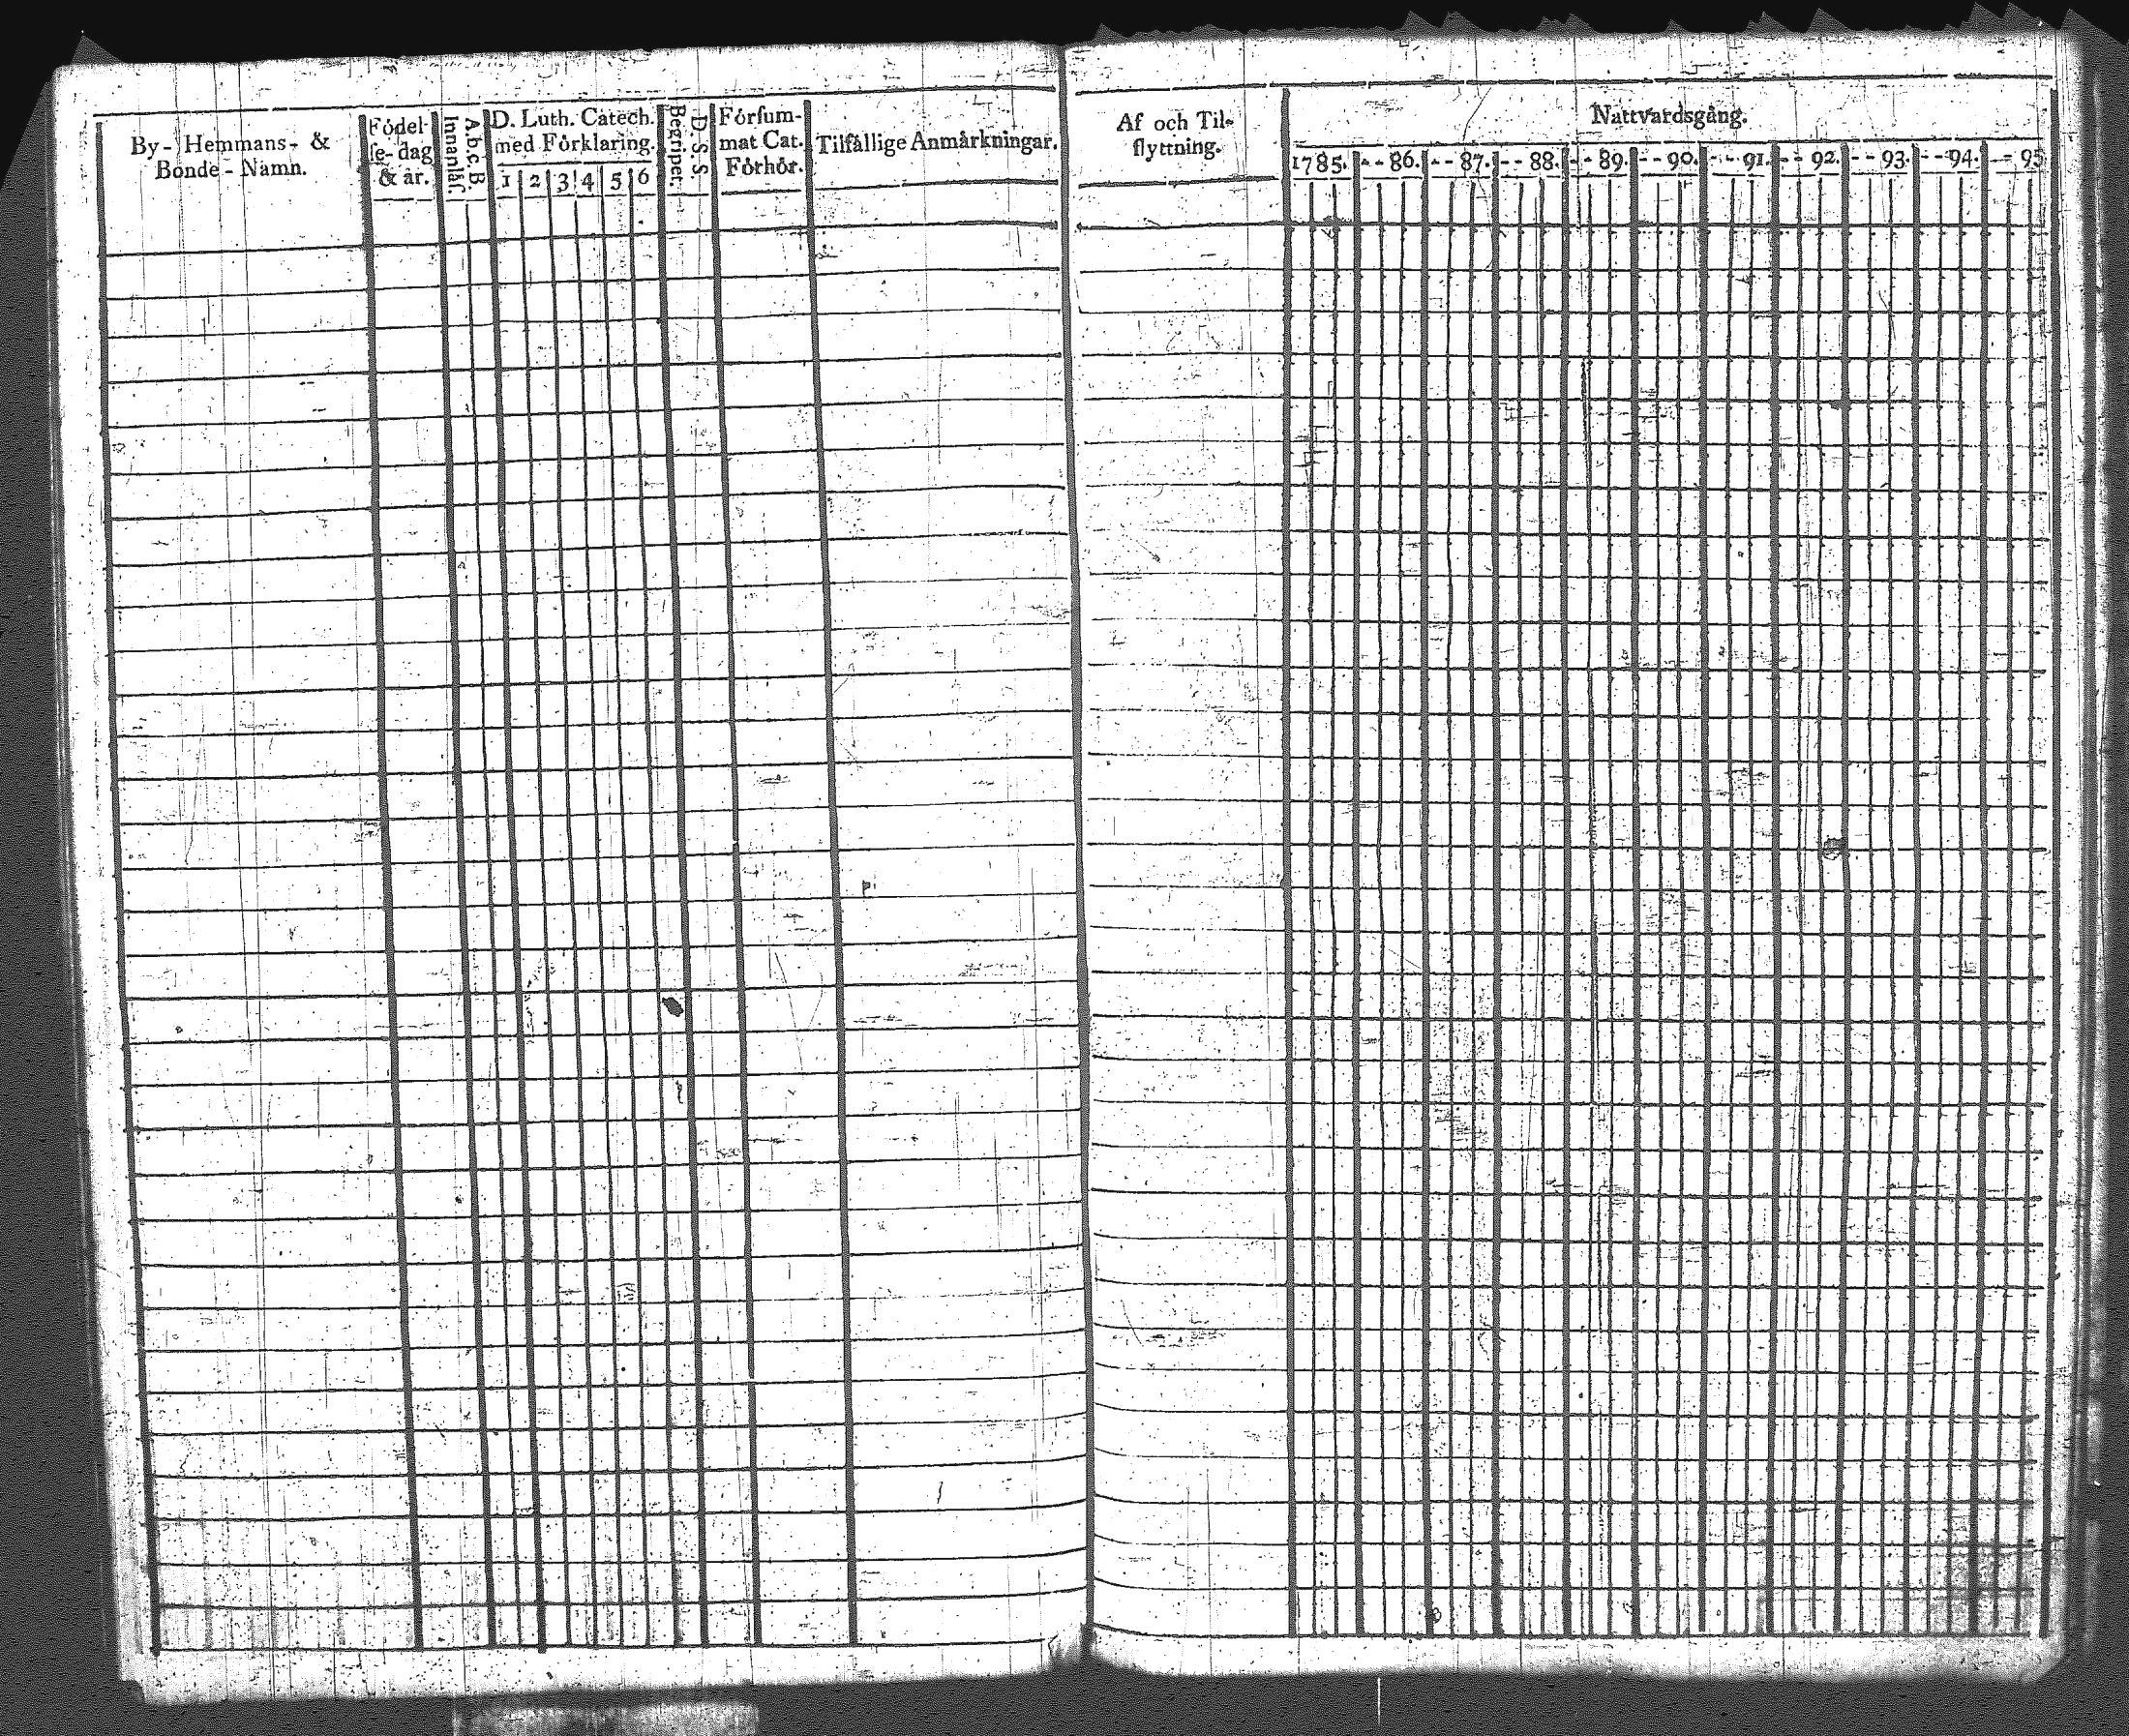 By- Hemmans- &
Bonde-Namn.
Fódel-
ſe-dag
& år.
A.b.c.B.
Innanläſ.
D. Luth. Catech.
med Fórklaring.
1 2 3 4 5 6
D. S. S.
Begriper.
Fórſum-
mat Cat.
Fórhór.
Tilfällige Anmärkningar.
Af och Til-
flyttning.
Nattvardsgång.
1785. - - 86. - - 87. - - 88. - - 89. - - 90. - - 91. - - 92. - - 93. - - 94. - - 95